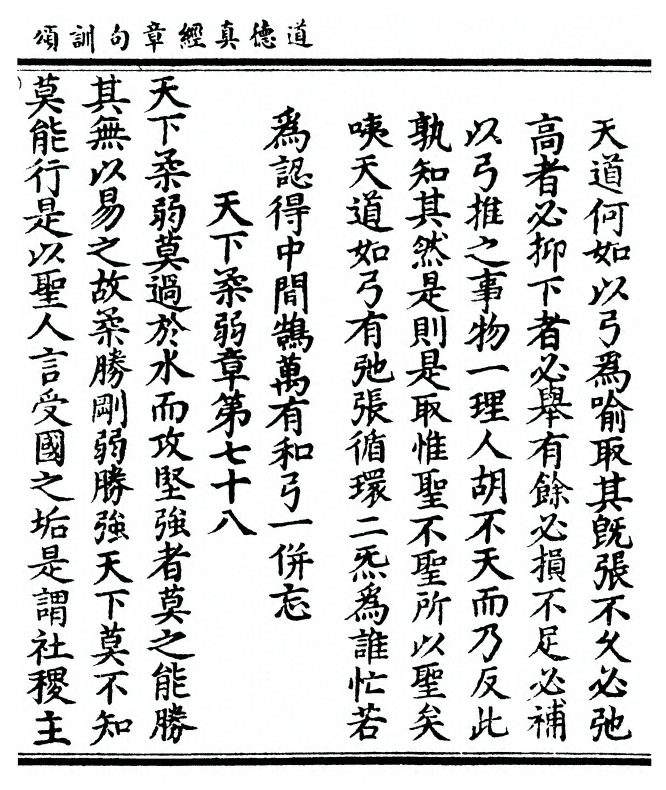 道德真經章句訓頌
天道何如以弓爲喻取其旣張不久必弛
高者必抑下者必舉有餘必損不足必補
以弓推之事物一理人胡不天而乃反此
孰知其然是則是取惟聖不聖所以聖矣
咦天道如弓有弛張循環二炁爲誰忙若
爲認得中間鵠萬有和弓一併忘
天下柔弱章第七十八
天下柔弱莫過於水而攻堅強者莫之能勝
其無以易之故柔勝剛弱勝強天下莫不知
莫能行是以聖人言受國之垢是謂社稷主